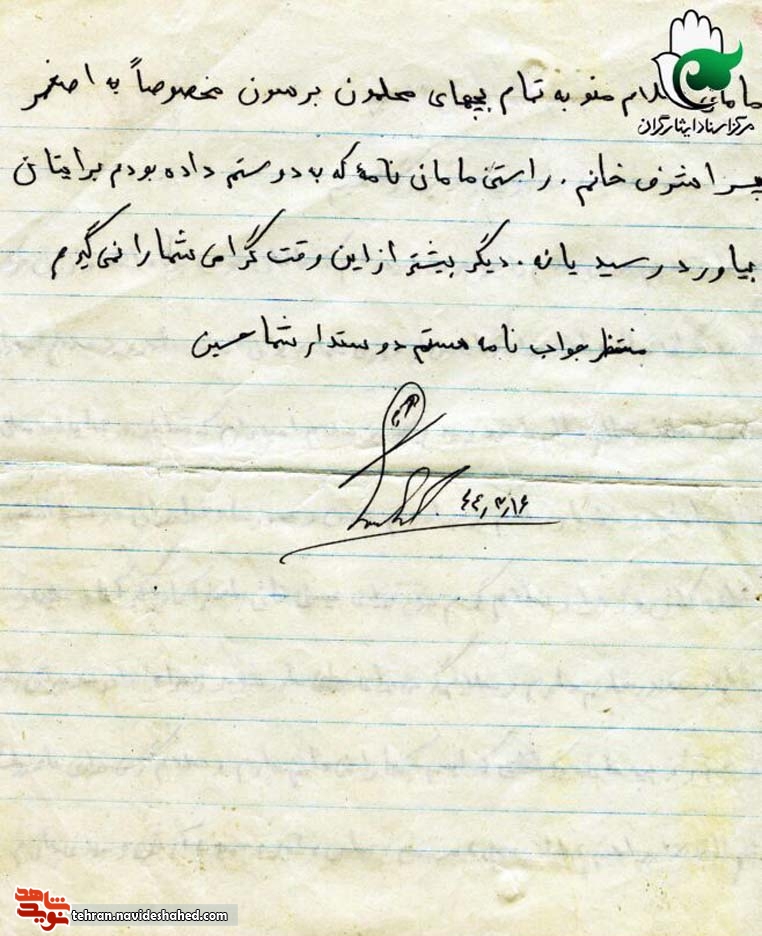 مامان سلام منو به تمام بچهای محلمون برسون مخصوصاً به اصغر
پسر اشرف خانم . راستی مامان نامهٔ که به دوستم داده بودم برایتان
بیاورد رسید یا نه . دیگر بیشتر از این وقت گرامی شما را نمی گیرم
منتظر جواب نامه هستم دوستدار شما حسین
۶۴٫۳٫۱۶
مرکز اسناد ایثارگران
نوید شاهد
tehran.navideshahed.com